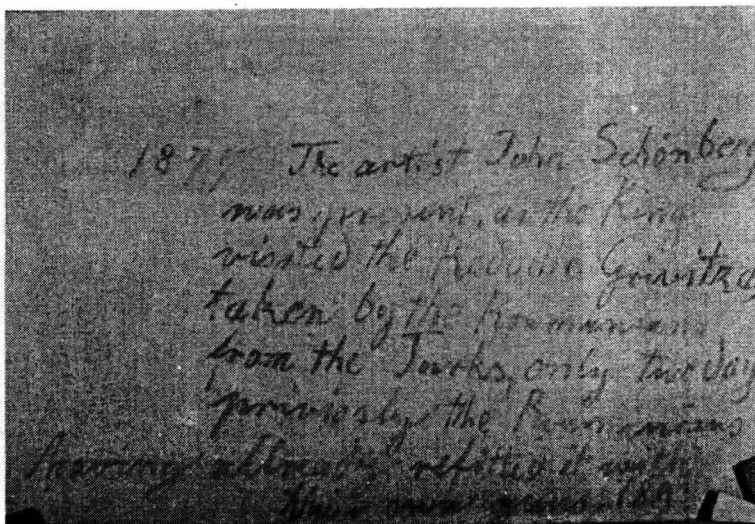 1877 The artist John Schönberg
was present, as the King
visited the Redoute Grivitza
taken by the Roumanians
from the Turks, only two days
priviosly the Roumanians
having allready refitted it with
their own guns